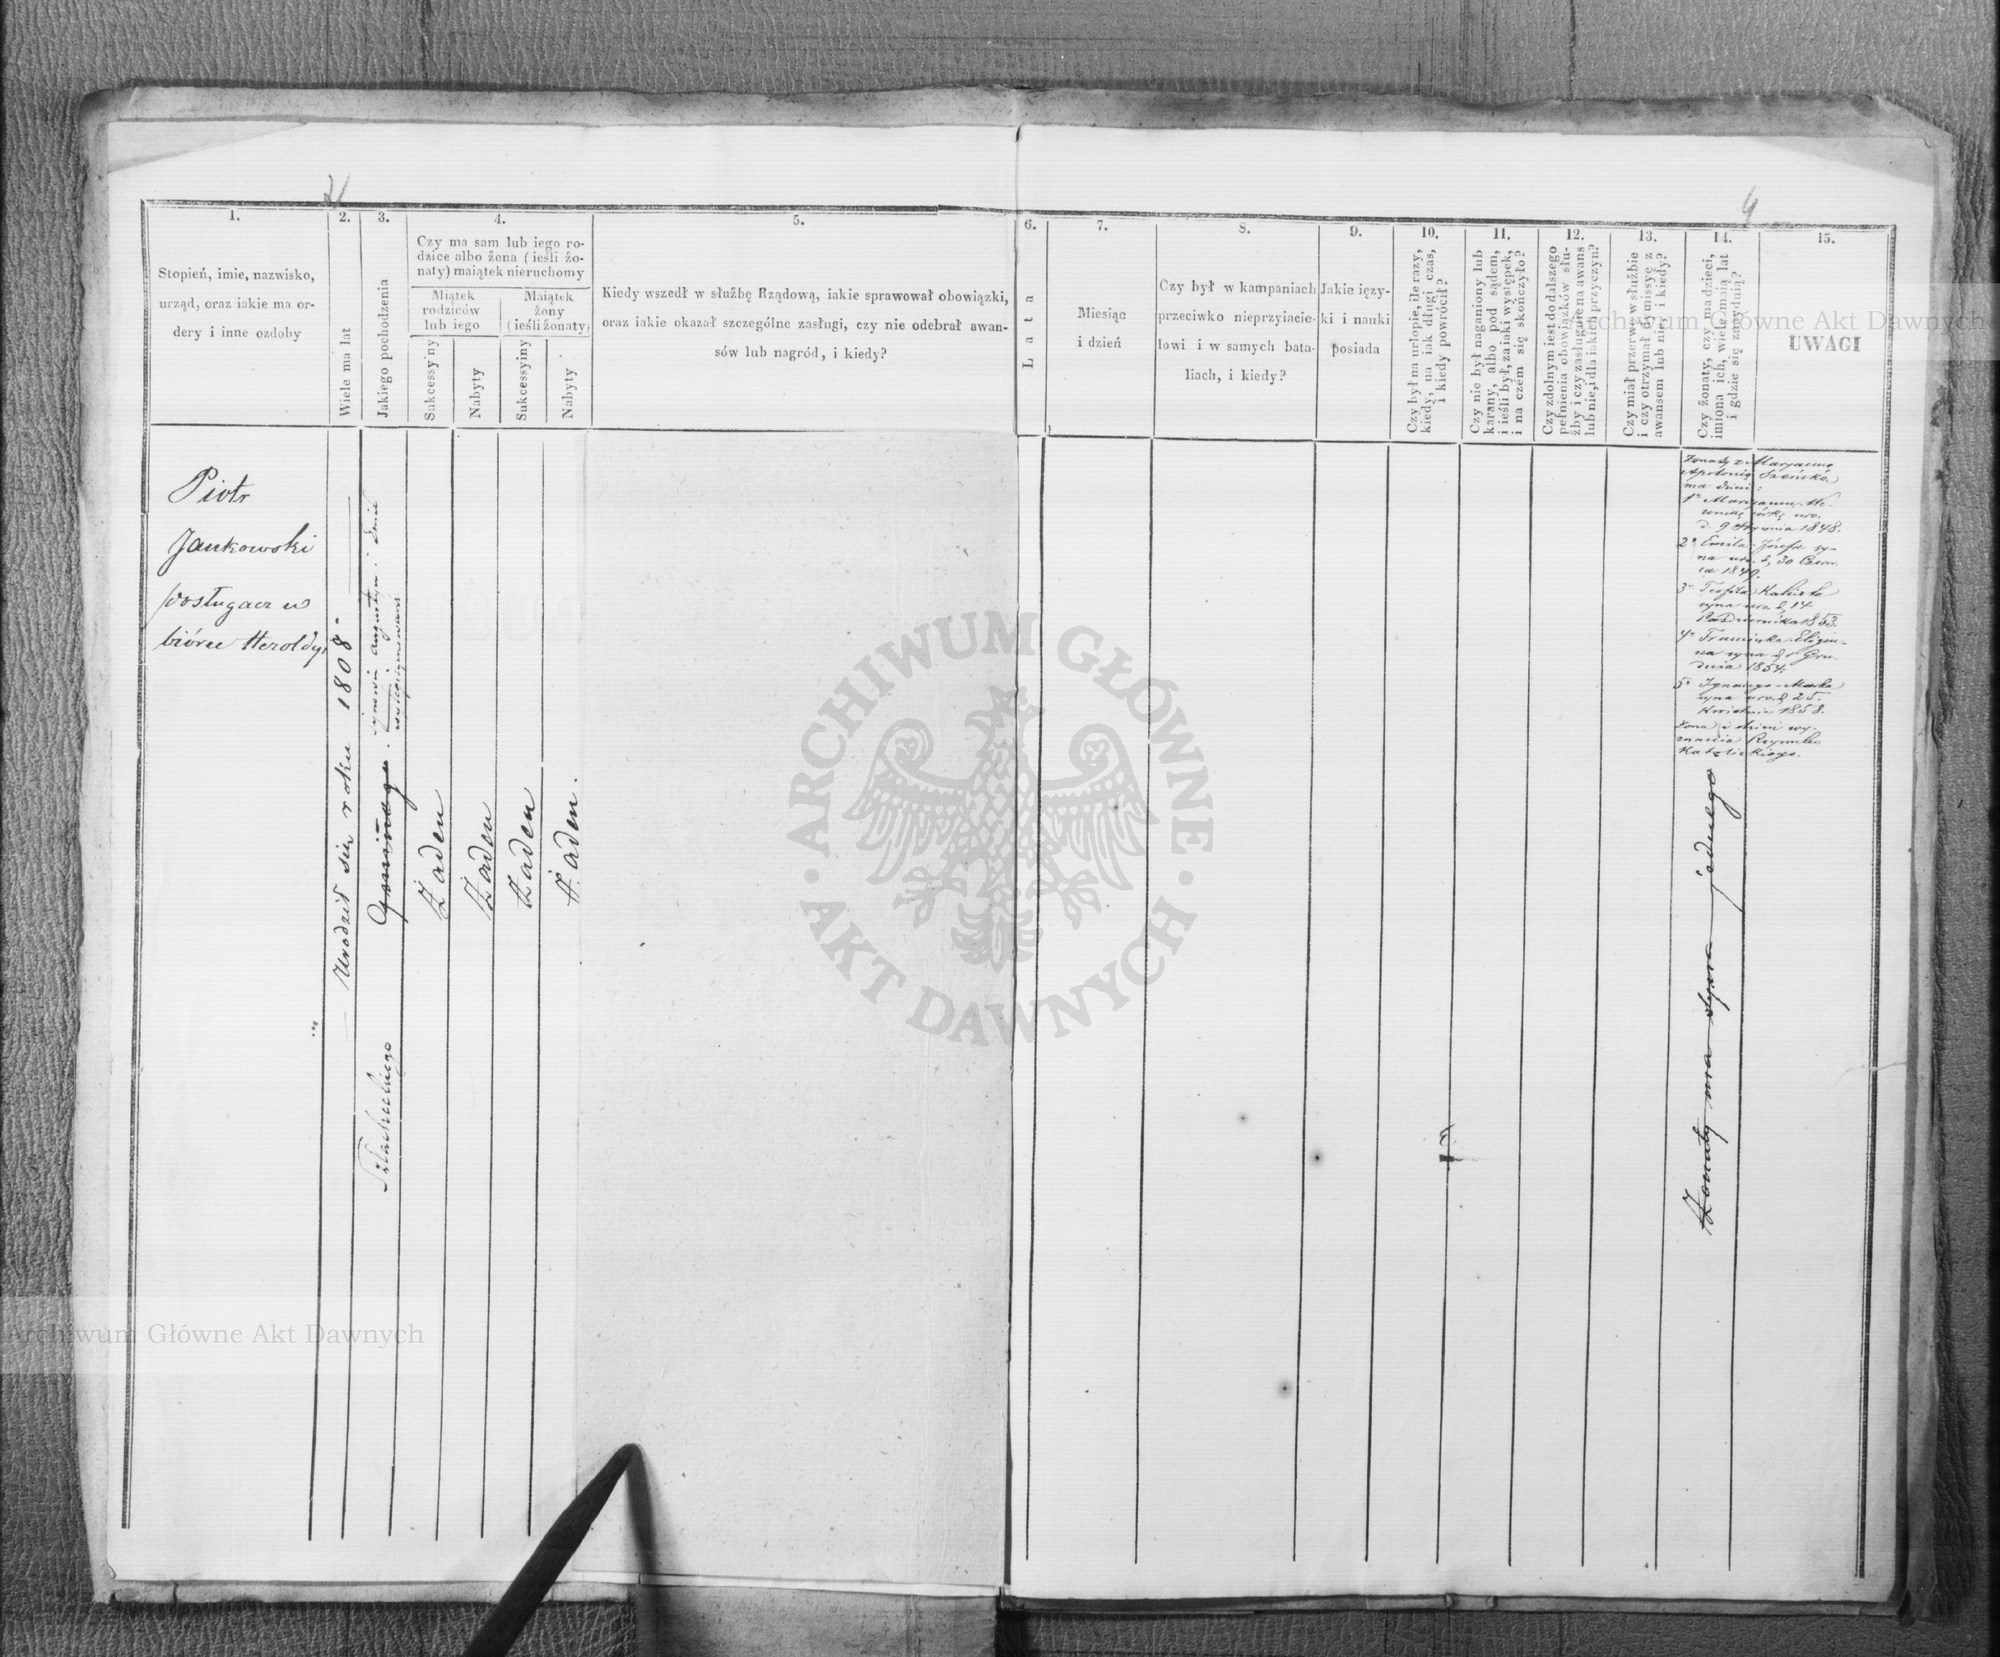 1.
Stopień, imie, nazwisko,
urząd, oraz iakie ma or-
dery i inne ozdoby
2.
Wiele ma lat
3.
Jakiego pochodzenia
4.
Czy ma sam lub iego ro-
dzice albo żona (ieśli żo-
naty) maiątek nieruchomy
Miątek
rodziców
lub iego
Maiątek
żony
(ieśli żonaty)
Sukcessyiny
Nabyty
Sukcessyiny
Nabyty
5.
Kiedy wszedł w służbę Rządową, iakie sprawował obowiązki,
oraz iakie okazał szczególne zasługi, czy nie odebrał awan-
sów lub nagród, i kiedy?
6.
Lata
7.
Miesiąc
i dzień
8.
Czy był w kampaniach
przeciwko nieprzyiacie-
lowi i w samych bata-
liach, i kiedy?
9.
Jakie ięzy-
ki i nauki
posiada
10.
Czy był na urlopie, ile razy,
kiedy, na iak długi czas,
i kiedy powrócił?
11.
Czy nie był naganiony lub
karany, albo pod sądem,
i ieśli był, za iaki występek,
i na czém się skończyło?
12.
Czy zdolnym iest do dalszego
pełnienia obowiązków słu-
żby i czy zasługuie na awans
lub nie, i dla iakich przyczyn?
13.
Czy miał przerwę w służbie
i czy otrzymał dymissyę z
awansem lub nie, i kiedy?
14.
Czy żonaty, czy ma dzieci,
imiona ich, wiele maią lat
i gdzie się znayduią?
15.
UWAGI
Piotr
Jankowski
posługacz w
biórze Heroldyi
Urodził się roku 1808
Gminnego
Szlacheckiego
synowie Augustyn i Emil
wylegitymowani
Żaden
Żaden
Żaden
Żaden.
Żonaty z Maryanną
Apolonią
ma dzieci:
1° Maryannę We-
ronikę córkę uro.
d. 9 Stycznia 1848.
2° Emila Józefa sy-
na uro. d. 30 Czerw
ca 1849.
3° Teofila Kaliksta
syna uro. d. 14
Października 1853.
4° Franciszka
na syna d. Gru-
dnia 1854.
5° Ignacego-Marka
syna uro. d. 25.
Kwietnia 1858.
Żona i dzieci wy-
znania Rzymsko
Katolickiego.
Żonaty ma syna jednego
ARCHIWUM GŁÓWNE
AKT DAWNYCH
Archiwum Główne Akt Dawnych
Archiwum Główne Akt Dawnych